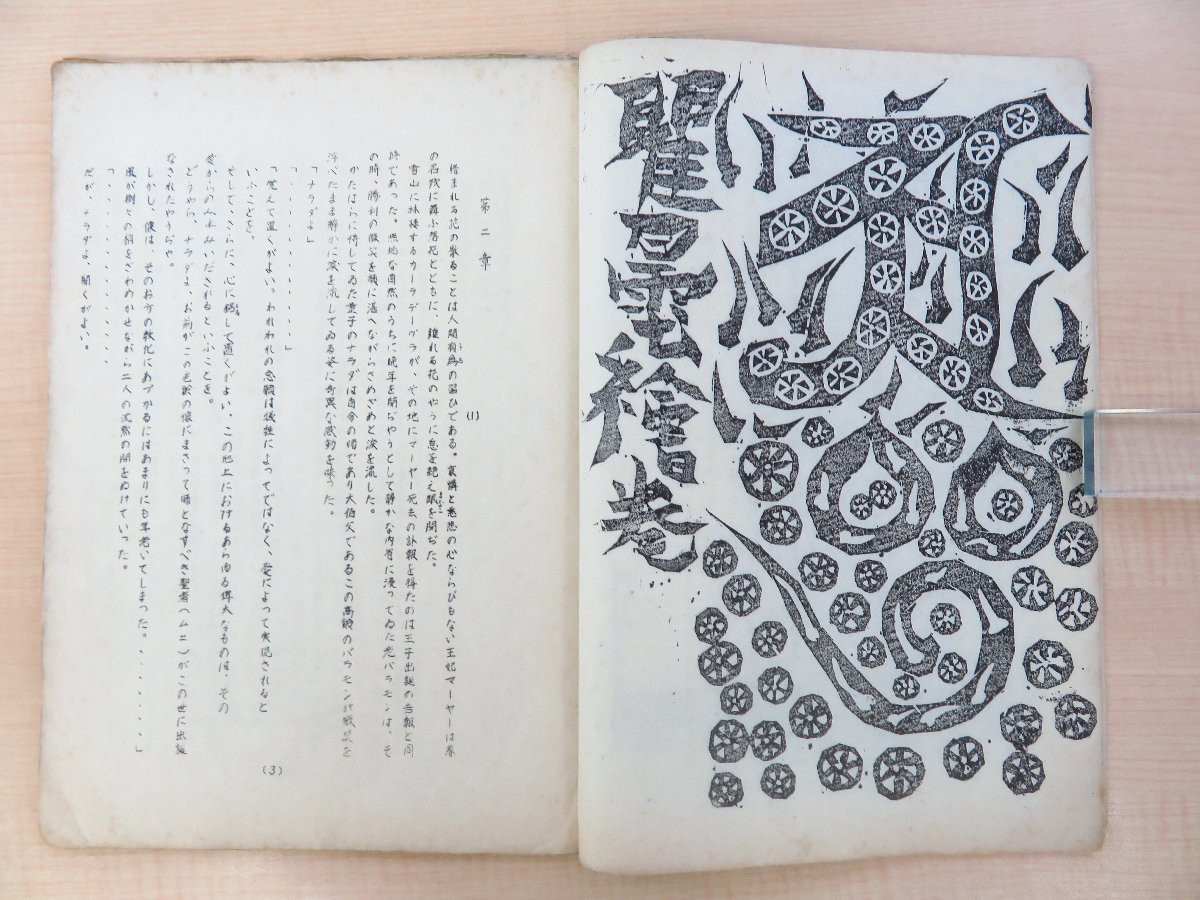 曜星繪巻
第二章
(1)
惜まれる花の散ることは人間有為の習ひである。哀憐と慈悲の心ならびもない王妃マーヤーは春
の名残に舞ふ落花とともに、
る花のやうに息を絶え眼を閉ぢた。
雪山に林棲するカーラデーヴラが、その地にマーヤー死去の訃報を得たのは王子出誕の吉報と同
時であった。無垢な自然のうちに晩年を閉ぢやうとして静かな内省に浸ってゐた老バラモンは、そ
の時、勝利の微笑を頬に湛へながらさめざめと涙を流した。
かたはらに侍してゐた童子のナラダは自分の師であり大伯父であるこの高齢のバラモンが微笑を
浮べたまま静かに涙を流してゐる姿に奇異な感動を味った。
「ナラダよ」
「・・・・・・・・・」
「覚えて置くがよい。われわれの念願は犠牲によってではなく、愛によって実現されると
いふことを。
そして、さらに、心に銘して置くがよい、この地上におけるあらゆる偉大なものは、その
愛からのみ生みいだされるといふことを。
どうやら、ナラダよ、お前がこの老齢の儂にまさって師となすべき聖者(ムニ)がこの世に出誕
なされたやうぢや。
しかし、儂は、そのお方の教化にあづかるにはあまりにも年老いてしまった。・・・・・・」
風が樹々の梢をざわめかせながら二人の沈黙の間をぬけていった。
「・・・・・・・・・・
だが、ナラダよ、聞くがよい。
(3)